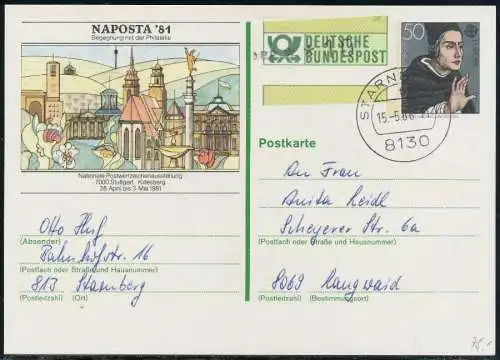 NAPOSTA '81
Begegnung mit der Philatelie
DEUTSCHE
BUNDESPOST
50
STARN
15.-5.86
8130
Nationale Postwertzeichenausstellung
7000 Stuttgart Killesberg
28. April bis 3. Mai 1981
Postkarte
An Frau
Anita Heidl
Scheyerer Str. 6a
(Postfach oder Straße und Hausnummer)
8069
(Postleitzahl) (Bestimmungsort)
Otto
(Absender)
Bahnhofstr. 16
(Postfach oder Straße und Hausnummer)
813 Starnberg
(Postleitzahl) (Ort)